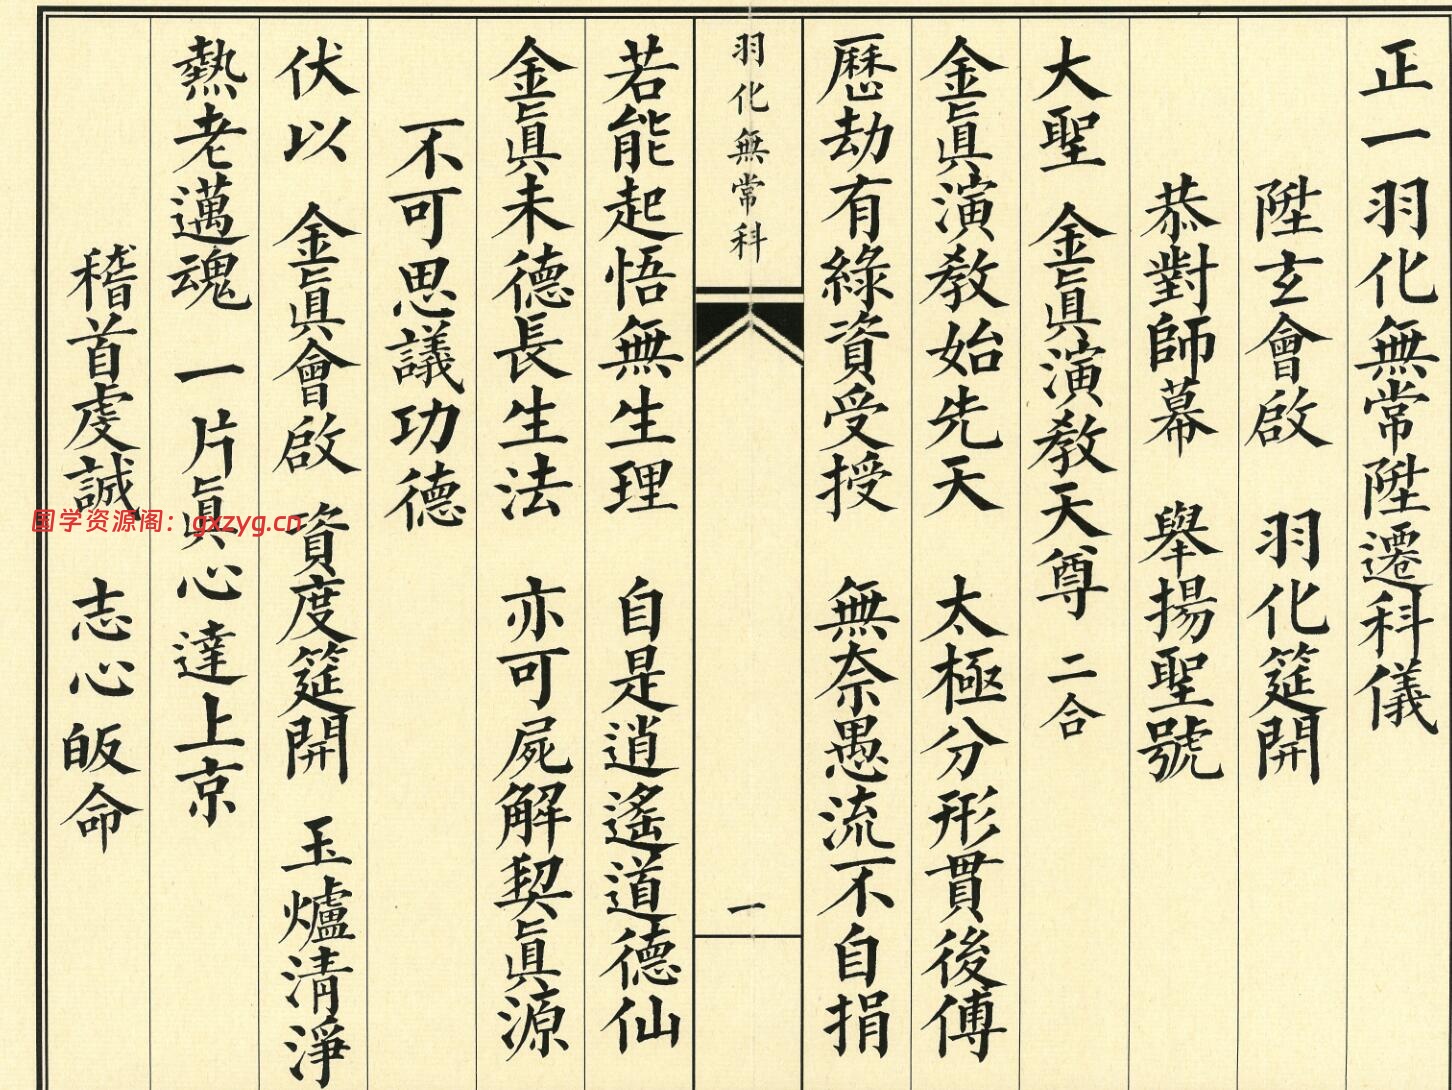 正一羽化無常陞遷科儀
陞玄會啟　羽化筵開
恭對師幕　舉揚聖號
大聖　金眞演教天尊　二合
金眞演教始先天　太極分形貫後傅
歷劫有綠資受授　無奈愚流不自捐
羽化無常科
一
若能起悟無生理　自是逍遙道德仙
金眞未德長生法　亦可屍解契眞源
不可思議功德
伏以　金眞會啟　資度筵開　玉爐清淨
熱老邁魂　一片眞心達上京
稽首虔誠　志心皈命
国学资源阁：gxzyg.cn